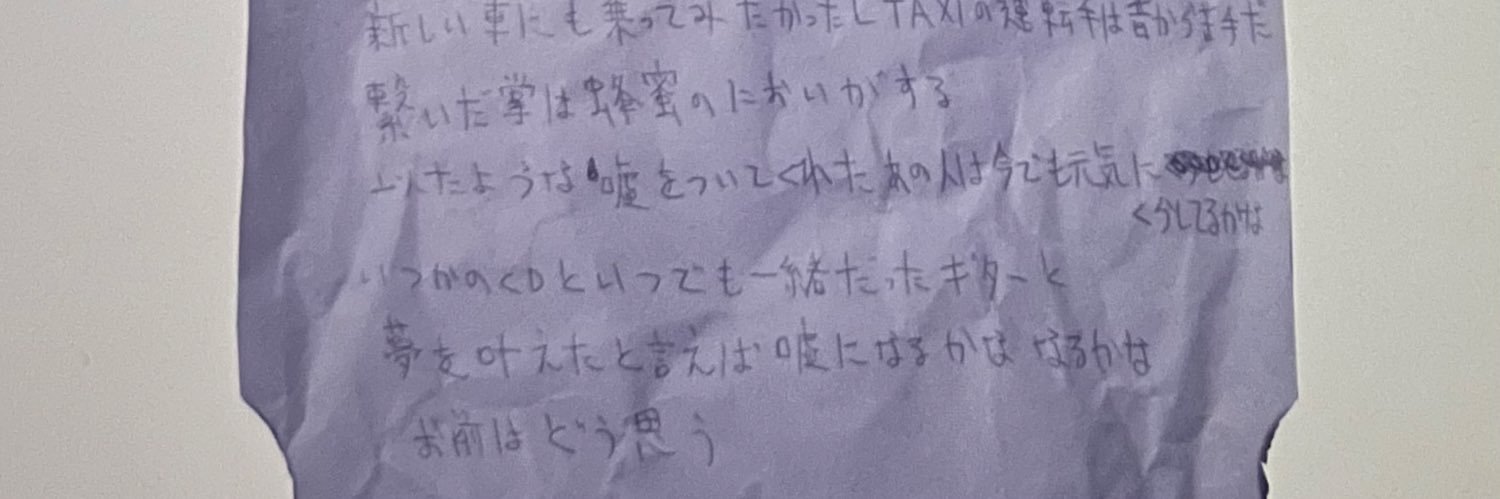 新しい車にも乗ってみたかったし TAXIの運転手は昔から苦手だ
繋いだ掌は蜂蜜のにおいがする
ような嘘をついてくれたあの人は今でも元気に
くらしてるかな
いつかのCDといつでも一緒だったギターと
夢を叶えたと言えば嘘になるかな なるかな
お前はどう思う